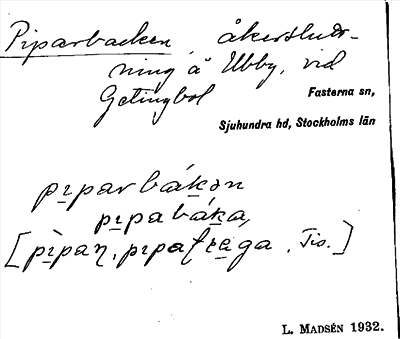 Piparbacken, åkersluttning
å Ubby, vid
Getingbol
Fasterna sn,
Sjuhundra hd, Stockholms län
pıparbákən
pıpabáka,
[pìpaɳ, pıpa
Tis.]
L. MADSÉN 1932.